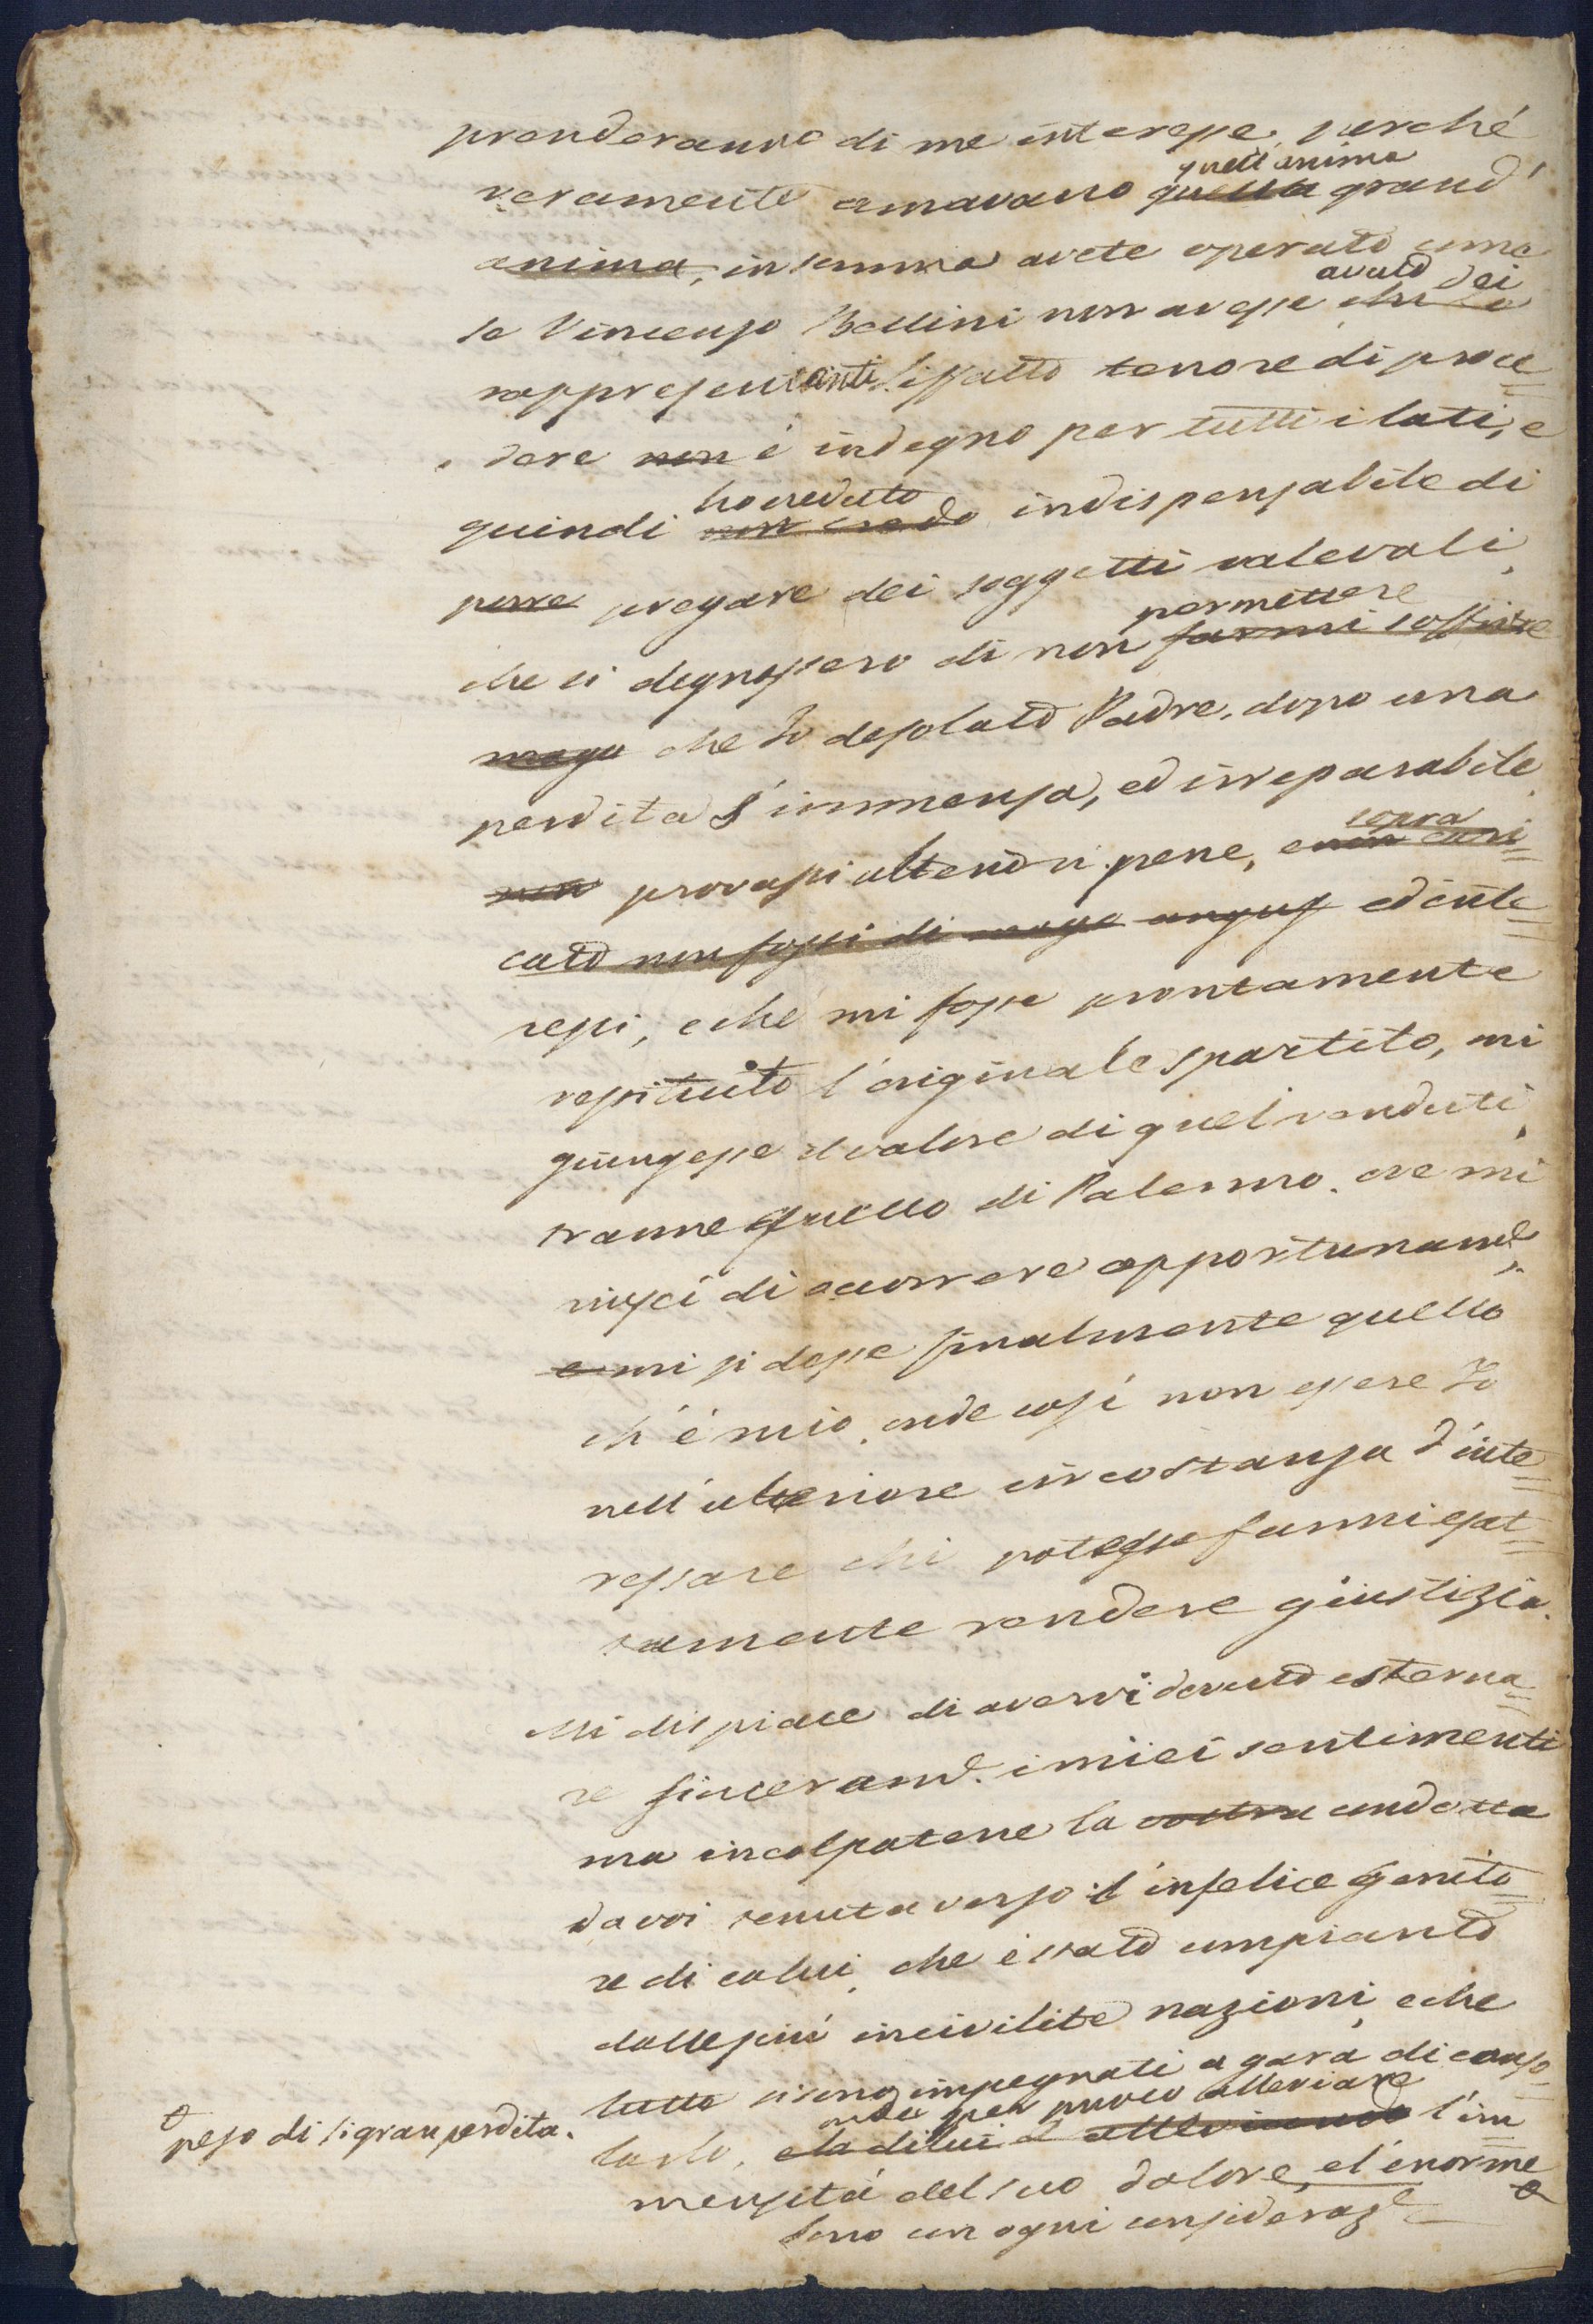 prenderanno di me interesse, perché
veramente amavano quella quell'anima grand'
anima, in somma avete operato come
se Vincenzo Bellini non avesse avuto dei
rappresentanti. Siffatto tenore di proce=
dere non è indegno per tutti i lati, e
quindi non credo ho creduto indispensabile di
porre pregare dei soggetti valevoli,
che si degnassero di non farmi soffrire permettere
che Io desolato Padre, dopo una
perdita s' immensa, ed irreparabile,
non provassi altronde pene, sopra
cato non fossi di ed inte=
ressi, e che mi fosse prontamente
restituito l'originale spartito, mi
giungesse il valore di quei venduti,
tranne quello di Palermo, ove mi
riuscì di accorrere opportunam.e,
e mi si desse finalmente quello
ch'è mio, onde così non essere Io
nell'ulteriore circostanza d'inte=
ressare chi potesse farmi esat=
tamente rendere giustizia.
Mi dispiace di avervi dovuto esterna=
re sinceram.e i miei sentimenti
ma incolpatene la vostra condotta
da voi tenuta verso l'infelice Genito=
re di colui, che è stato compianto
dalle più incivilite nazioni, e che
tutte si sono impegnati a gara di conso=
larlo, e la di lui onde per poco alleviare alleviando l'im=
mensità del suo dolore, e l'enorme
peso di sì gran perdita.
Sono con ogni consideraz.e